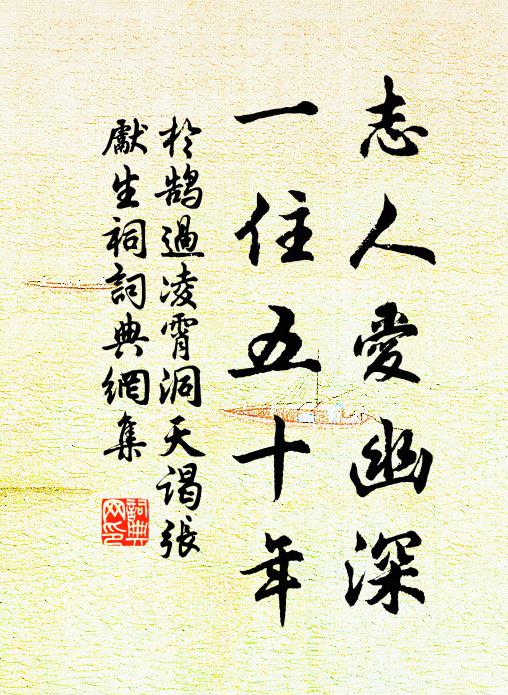 志人愛幽深
一住五十年
於鵠過凌霄洞天謁張
獻生祠詞典網集
詞典
网印